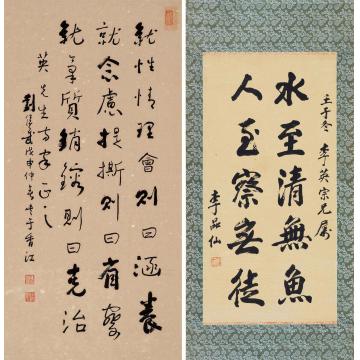 就性情理會則曰涵養
就念慮提撕則曰省察
就氣質銷鎔則曰克治
英先生方家正之
劉侯武戊申仲冬書于香江
壬子冬 李英宗兄屬
水至清無魚
人至察無徒
李品仙